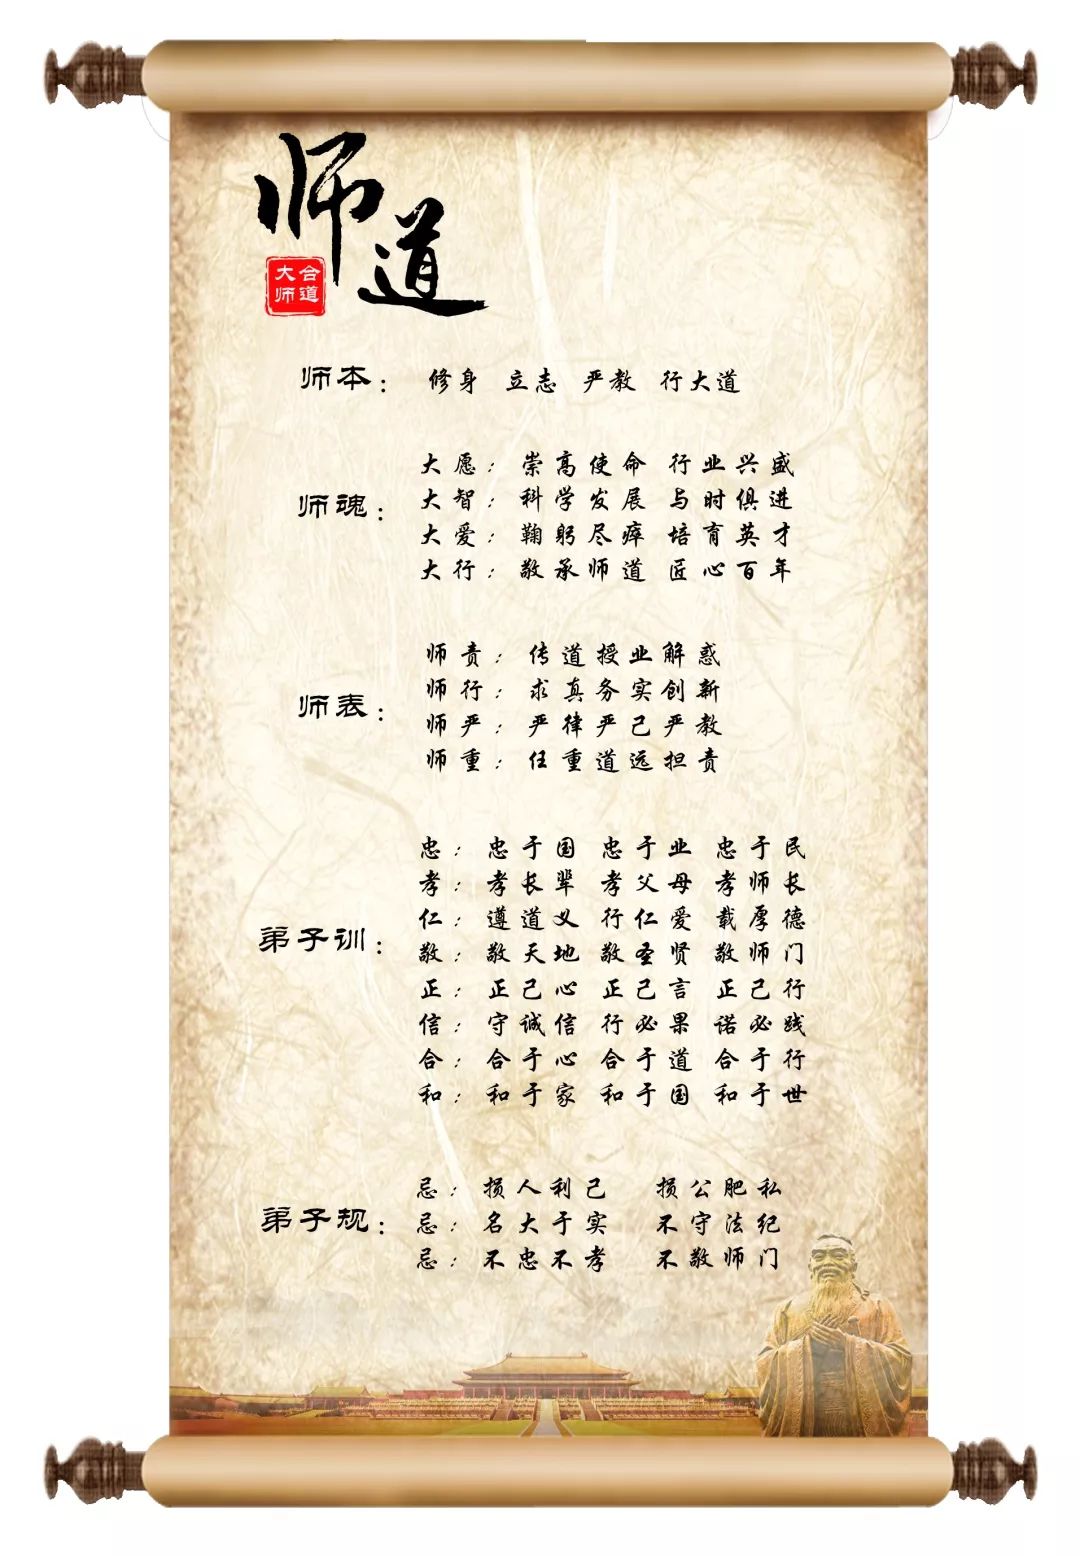 师道
合道
大师
师本： 修身 立志 严教 行大道
师魂：
大愿：崇高使命 行业兴盛
大智：科学发展 与时俱进
大爱：鞠躬尽瘁 培育英才
大行：敬承师道 匠心百年
师表：
师责：传道授业解惑
师行：求真务实创新
师严：严律严己严教
师重：任重道远担责
弟子训：
忠：忠于国 忠于业 忠于民
孝：孝长辈 孝父母 孝师长
仁：遵道义 行仁爱 载厚德
敬：敬天地 敬圣贤 敬师门
正：正己心 正己言 正己行
信：守诚信 行必果 诺必践
合：合于心 合于道 合于行
和：和于家 和于国 和于世
弟子规：
忌：损人利己 损公肥私
忌：名大于实 不守法纪
忌：不忠不孝 不敬师门